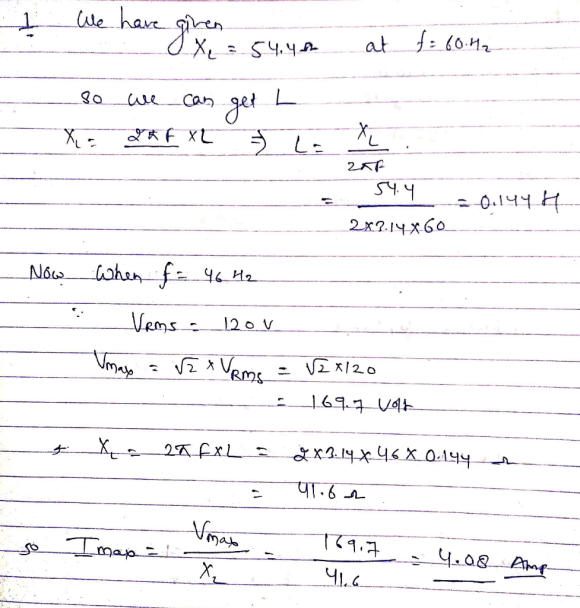 1 We have given
X_L = 54.4 Ω at f = 60.Hz
so we can get L
X_L = 2πf × L ⇒ L = X_L / 2πf .
= 54.4 / 2×3.14×60 = 0.144 H
Now When f = 46 Hz
∵ VRMS = 120 V
Vmax = √2 × VRMS = √2 × 120
= 169.7 Volt
& X_L = 2π f×L = 2×3.14×46×0.144 Ω
= 41.6 Ω
so Imax = Vmax / X_L = 169.7 / 41.6 = 4.08 Amp